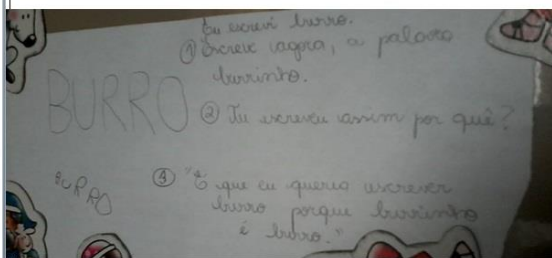 Eu escrevi burro.
① Escreve agora, a palavra
burrinho.
BURRO
② Tu escreveu assim por quê?
BURRO
③ "É que eu queria escrever
burro porque burrinho
é burro."